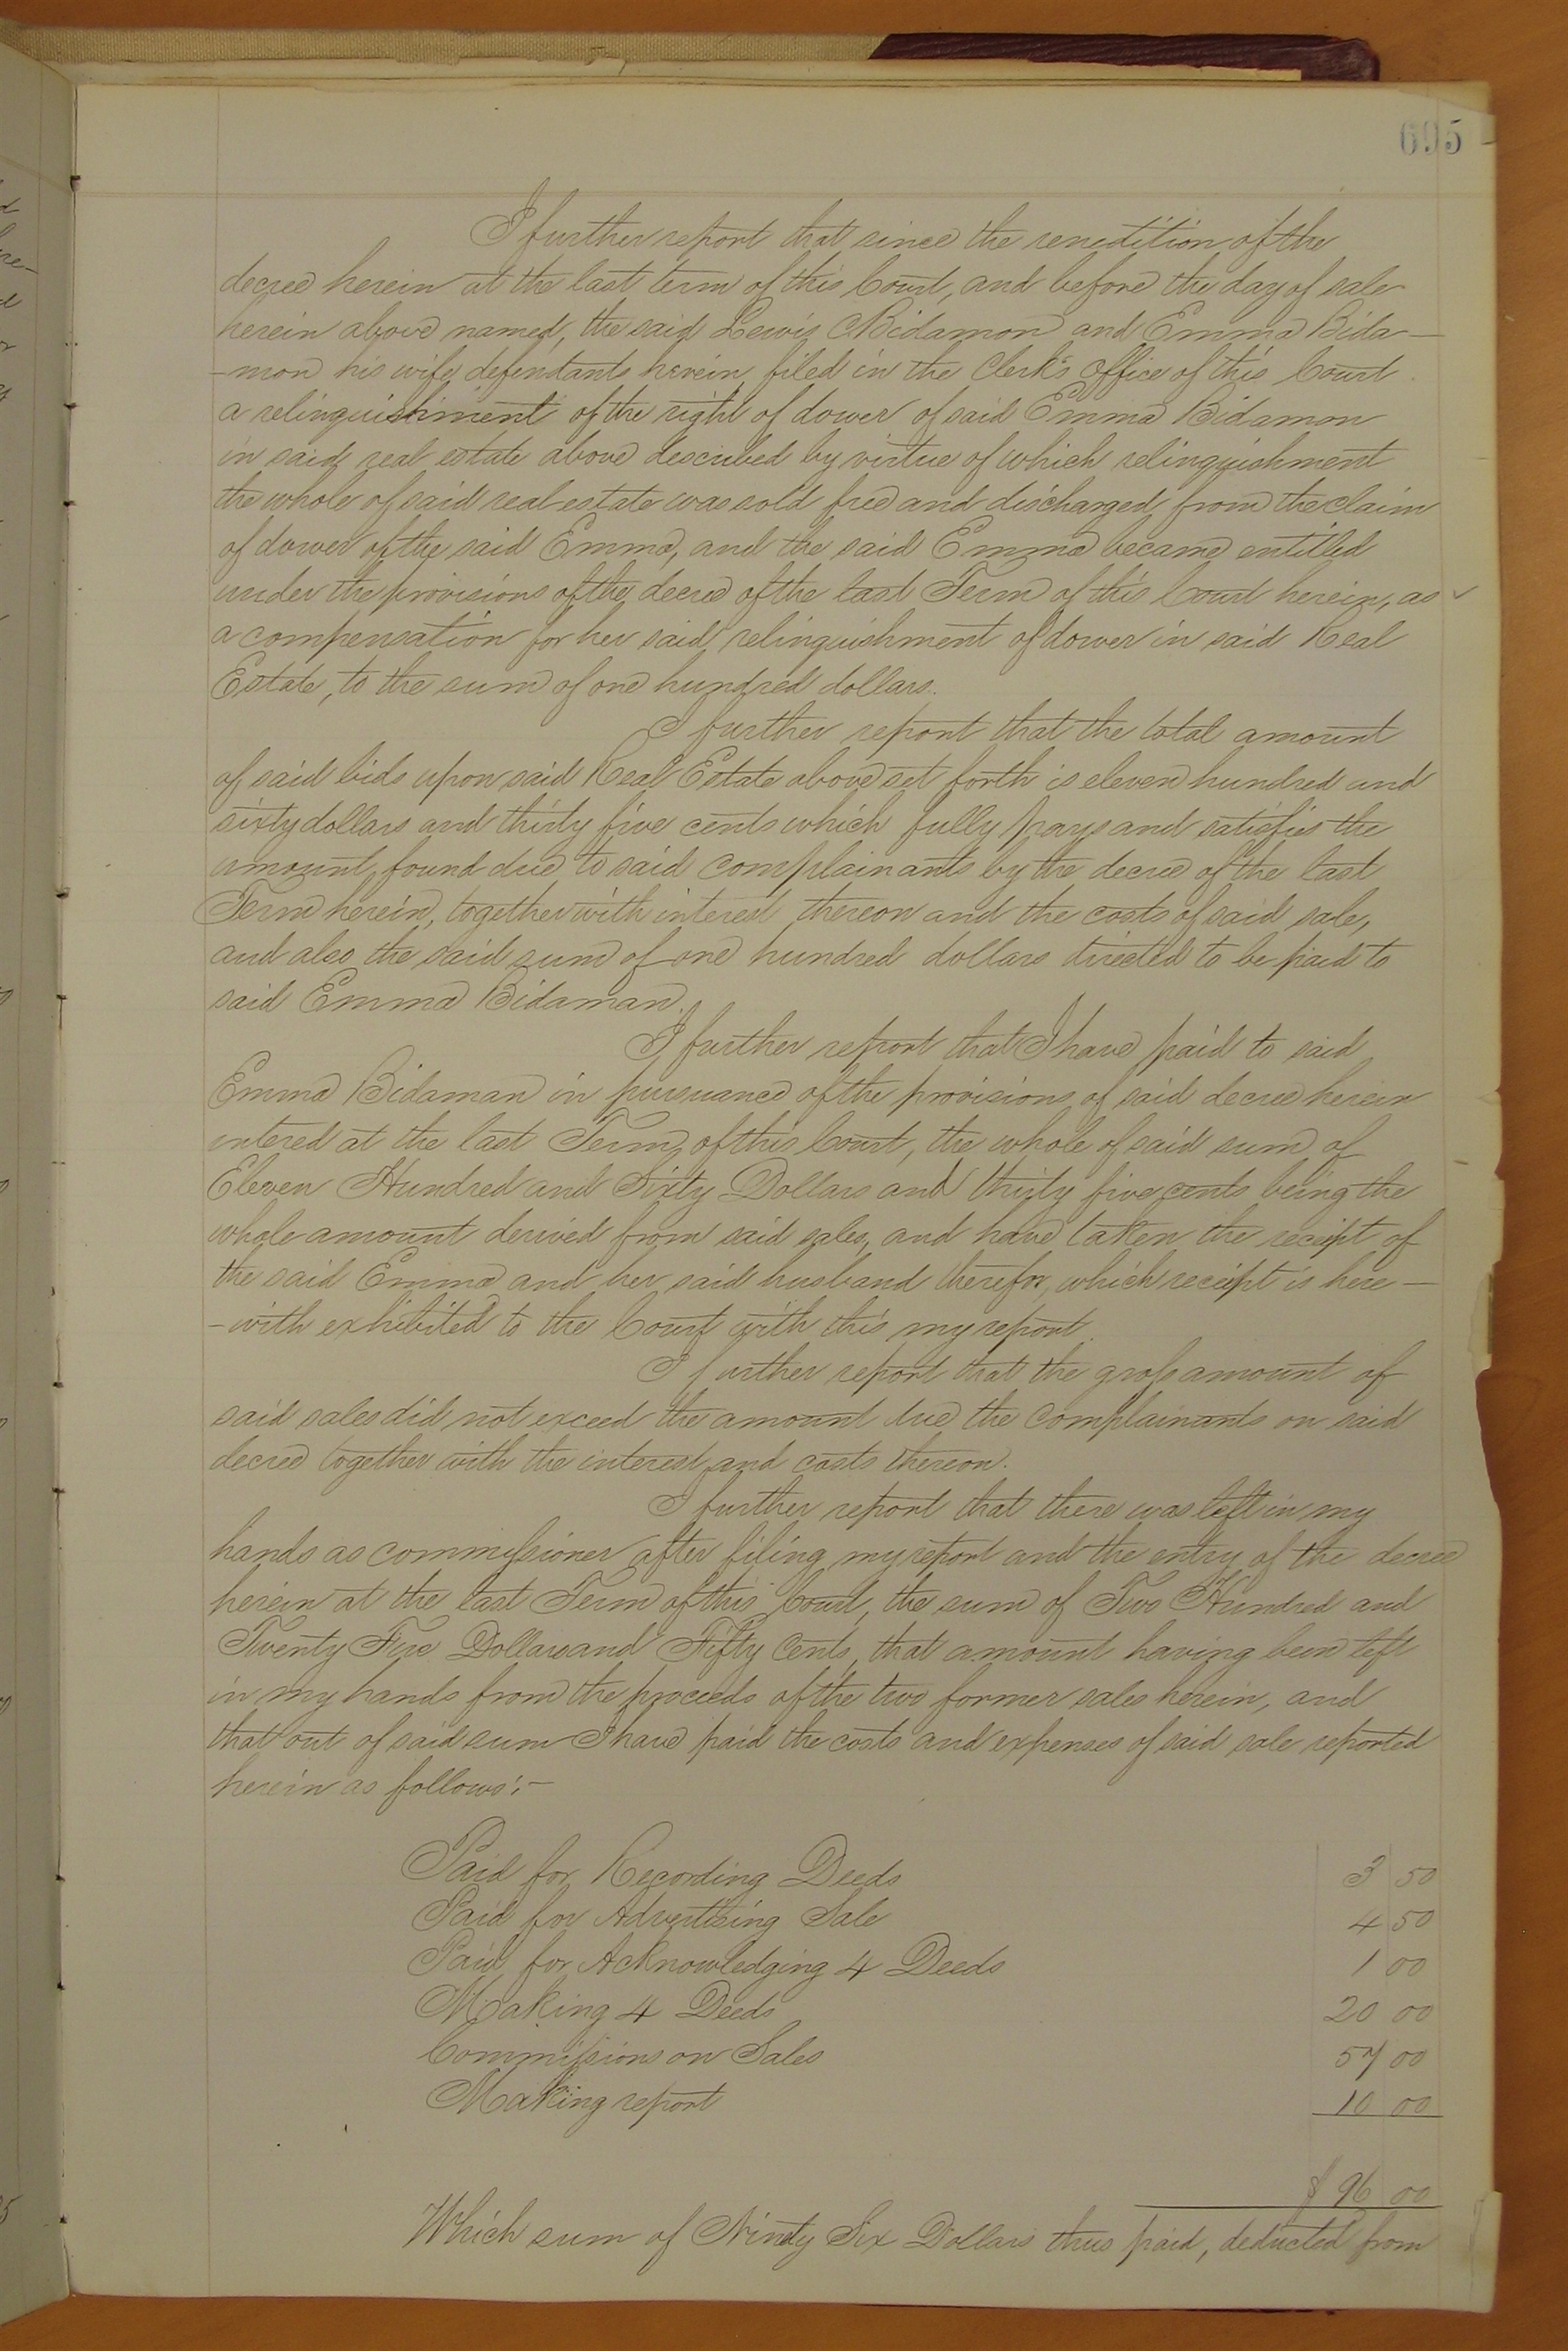 695
I further report that since the renedition of the
decree herein at the last term of this Court, and before the day of sale
herein above named, the said Lewis C Bidamon and Emma Bida-
-mon his wife, defendants herein, filed in the Clerk's Office of this Court
a relinquishment of the right of dower of said Emma Bidamon
in said real estate above described by virtue of which relinquishment
the whole of said real estate was sold free and discharged from the claim
of dower of the said Emma, and the said Emma became entitled
under the provisions of the decree of the last Term of this Court herein, as
a compensation for her said relinquishment of dower in said Real
Estate, to the sum of one hundred dollars.
I further report that the total amount
of said bids upon said Real Estate above set forth is eleven hundred and
sixty dollars and thirty five cents which fully pays and satisfies the
amount found due to said complainants by the decree of the last
Term herein, together with interest thereon and the costs of said sale,
and also the said sum of one hundred dollars directed to be paid to
said Emma Bidaman.
I further report that I have paid to said
Emma Bidaman in pursuance of the provisions of said decree herein
entered at the last Term of this Court, the whole of said sum of
Eleven Hundred and Sixty Dollars and thirty five cents being the
whole amount derived from said sales, and have taken the receipt of
the said Emma and her said husband therefor, which receipt is here-
-with exhibited to the Court with this my report.
I further report that the gross amount of
said sales did not exceed the amount due the complainants on said
decree together with the interest and costs thereon.
I further report that there was left in my
hands as commissioner after filing my report and the entry of the decree
herein at the last Term of this Court, the sum of Two Hundred and
Twenty Five Dollars and Fifty Cents, that amount having been left
in my hands from the proceeds of the two former sales herein, and
that out of said sum I have paid the costs and expenses of said sale reported
herein as follows:-
Paid for Recording Deeds 3 50
Paid for Advertising Sale 4 50
Paid for Acknowledging 4 Deeds 1 00
Making 4 Deeds 20 00
Commissions on Sales 57 00
Making report 10 00
$ 96 00
Which sum of Ninety Six Dollars thus paid, deducted from